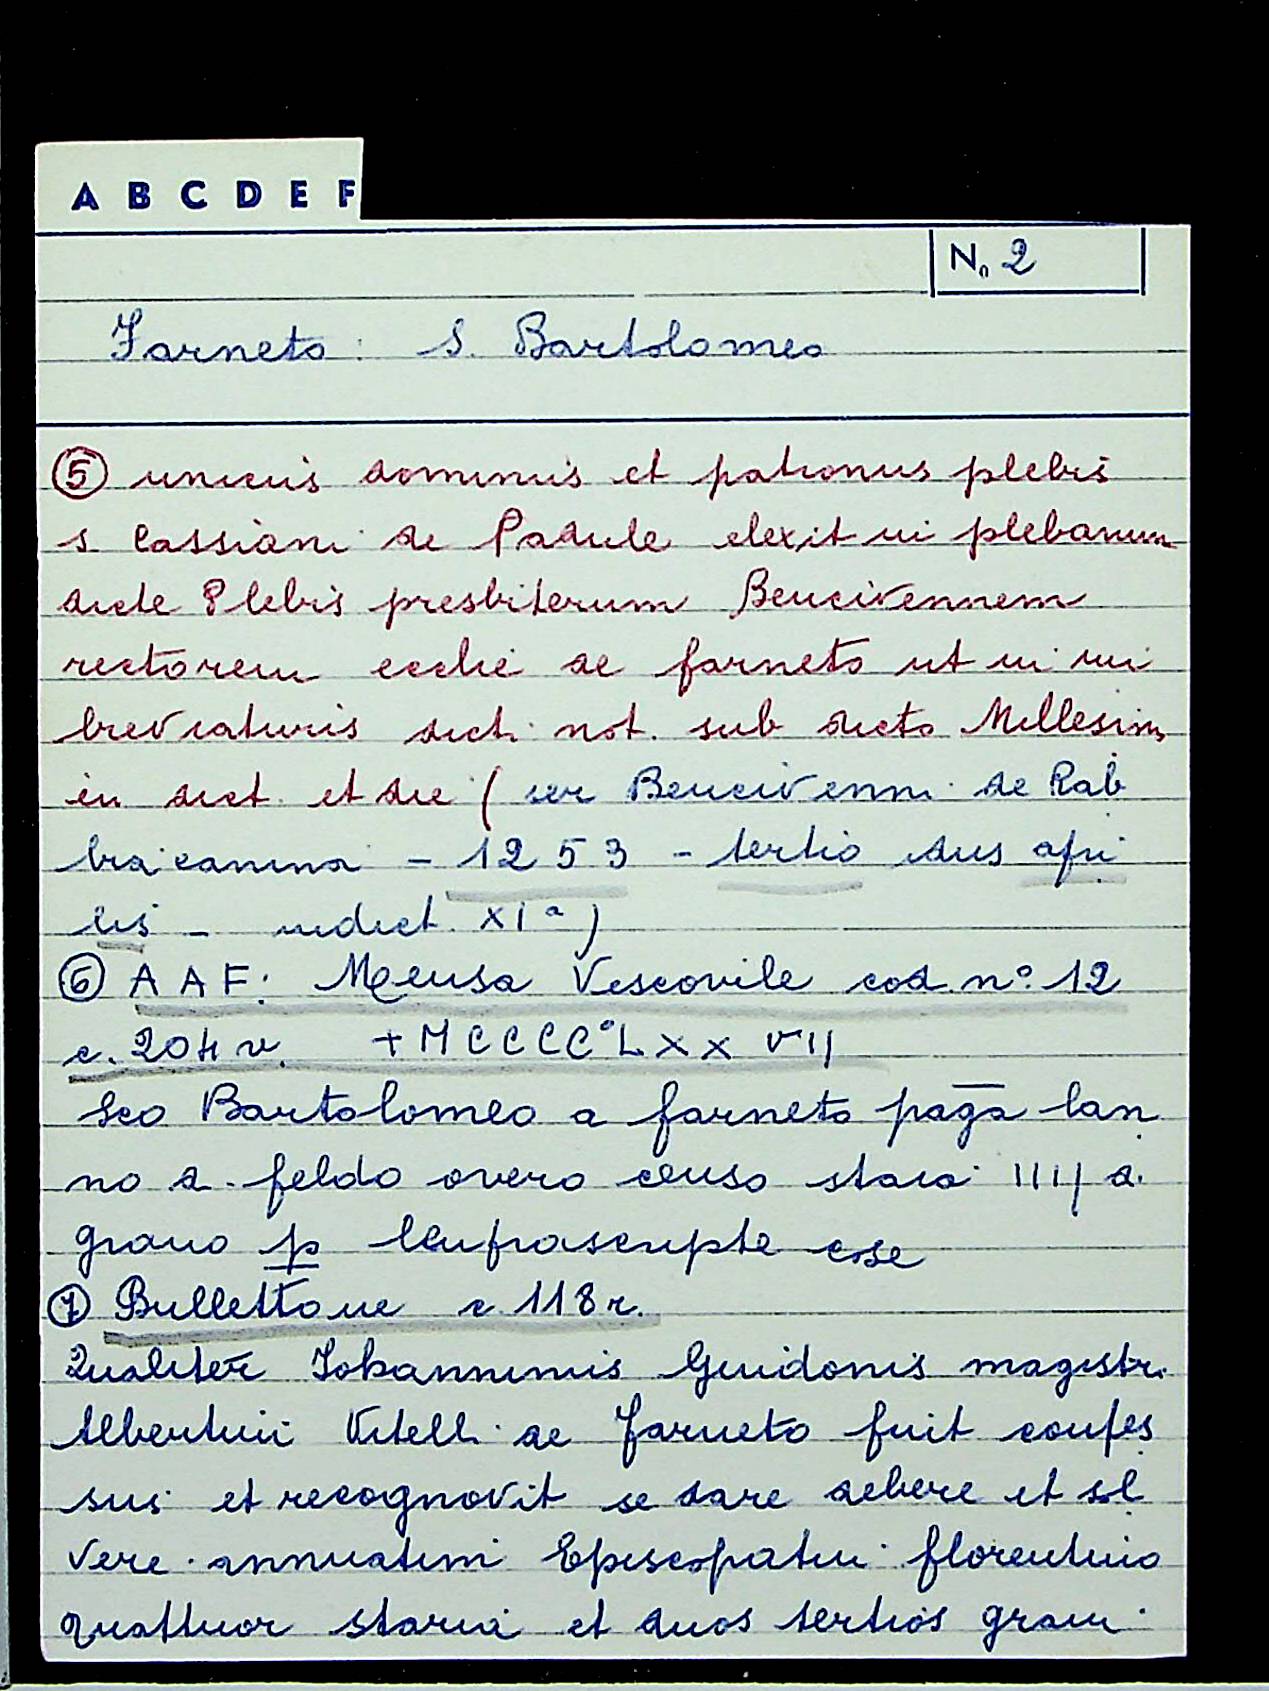 A B C D E F
N. 2
Farneto: S. Bartolomeo
⑤ unicus dominus et patronus plebis
s. Cassiani de Padule elexit in plebanum
dicte Plebis presbiterum Bencivennem
rectorem ecclie de farneto ut in im
breviaturis dict. not. sub dicto Millesim
in dict. et die ( ser Bencivenni de Rab
bia canina - 1253 - tertio dus apri
lis - indict. XIª)
⑥ AAF: Mensa Vescovile cod. nº. 12
c. 204 v. + MCCCC°LXXVIJ
Sco Bartolomeo a farneto paga lan
no d. feldo overo censo staia IIIJ d.
grano p lenfrascripte cose
⑦ Bullettone c. 118 r.
Qualiter Iohanninus Guidonis magistr.
Albertini Vitelli de Farneto fuit confes
sus et recognovit se dare debere et sol
vere annuatim Episcopatui florentino
quattuor staria et duos tertios grani